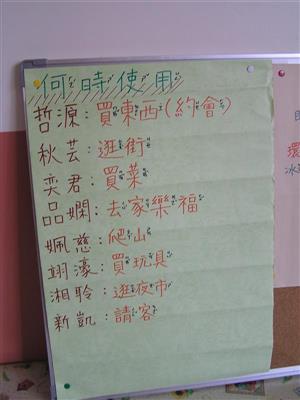 何時使用
哲源：買東西（約會）
秋芸：逛街
奕君：買菜
品嫻：去家樂福
姵慈：爬山
翊濠：買玩具
湘聆：逛夜市
新凱：請客